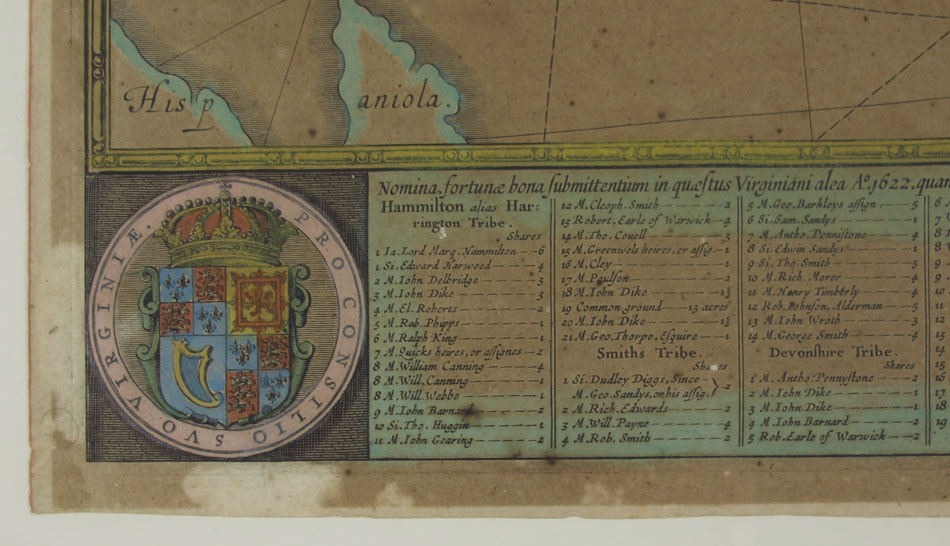 Hisp
aniola.
PRO CONSILIO SVO VIRGINIÆ.
Nomina, fortunæ bona ſubmittentium in quæſtus Virginiani alea Aº. 1622. quan
Hammilton alias Har:
rington Tribe.
Shares
1 Ia. Lord Marq. Hammilton — 6
1 Si. Edward Harwood — 4
2 M. Iohn Delbridge — 3
3 M. Iohn Dike — 3
4 M. El. Roberts — 2
5 M. Rob. Phipps — 1
6 M. Ralph King — 1
7 M. Quicks heires, or aſſignes — 2
8 M. William Canning — 4
8 M. Will. Canning — 1
8 M. Will. Webbe — 1
9 M. Iohn Barnard — 2
10 Si. Tho. Huggin — 1
11 M. Iohn Gearing — 2
12 M. Cleoph. Smith — 2
13 Robert. Earle of Warwick — 4
14 M. Tho. Covell — 3
15 M. Greenwels heires, or aſſig — 1
16 M. Cley — 1
17 M. Poulſon — 2
18 M. Iohn Dike — 1½
19 Common ground — 13 acres
20 M. Iohn Dike — 1½
21 M. Geo. Thorpe, Eſquire — 1
Smiths Tribe.
Shares
1 Si. Dudley Diggs, Since
M. Geo. Sandys, on his aſſig. } 2
2 M. Rich. Edwards — 2
3 M. Will. Payne — 4
4 M. Rob. Smith — 2
5 M. Geo. Barkleys aſſign. — 5
6 Si. Sam. Sandys — 1
7 M. Antho. Penniſtone — 4
8 Si. Edwin Sandys — 1
9 Si. Tho. Smith — 5
10 M. Rich. Morer — 4
11 M. Henry Timberly — 4
12 Rob. Iohnſon, Alderman — 5
13 M. Iohn Wroth — 3
14 M. George Smith — 4
Devonſhire Tribe.
Shares
1 M. Antho. Pennyſtone — 2
2 M. Iohn Dike — 1
3 M. Iohn Dike — 1
4 M. Iohn Barnard — 2
5 Rob. Earle of Warwick — 2
6
7
8
8
9
10
11
12
13
14
15
16
17
18
19